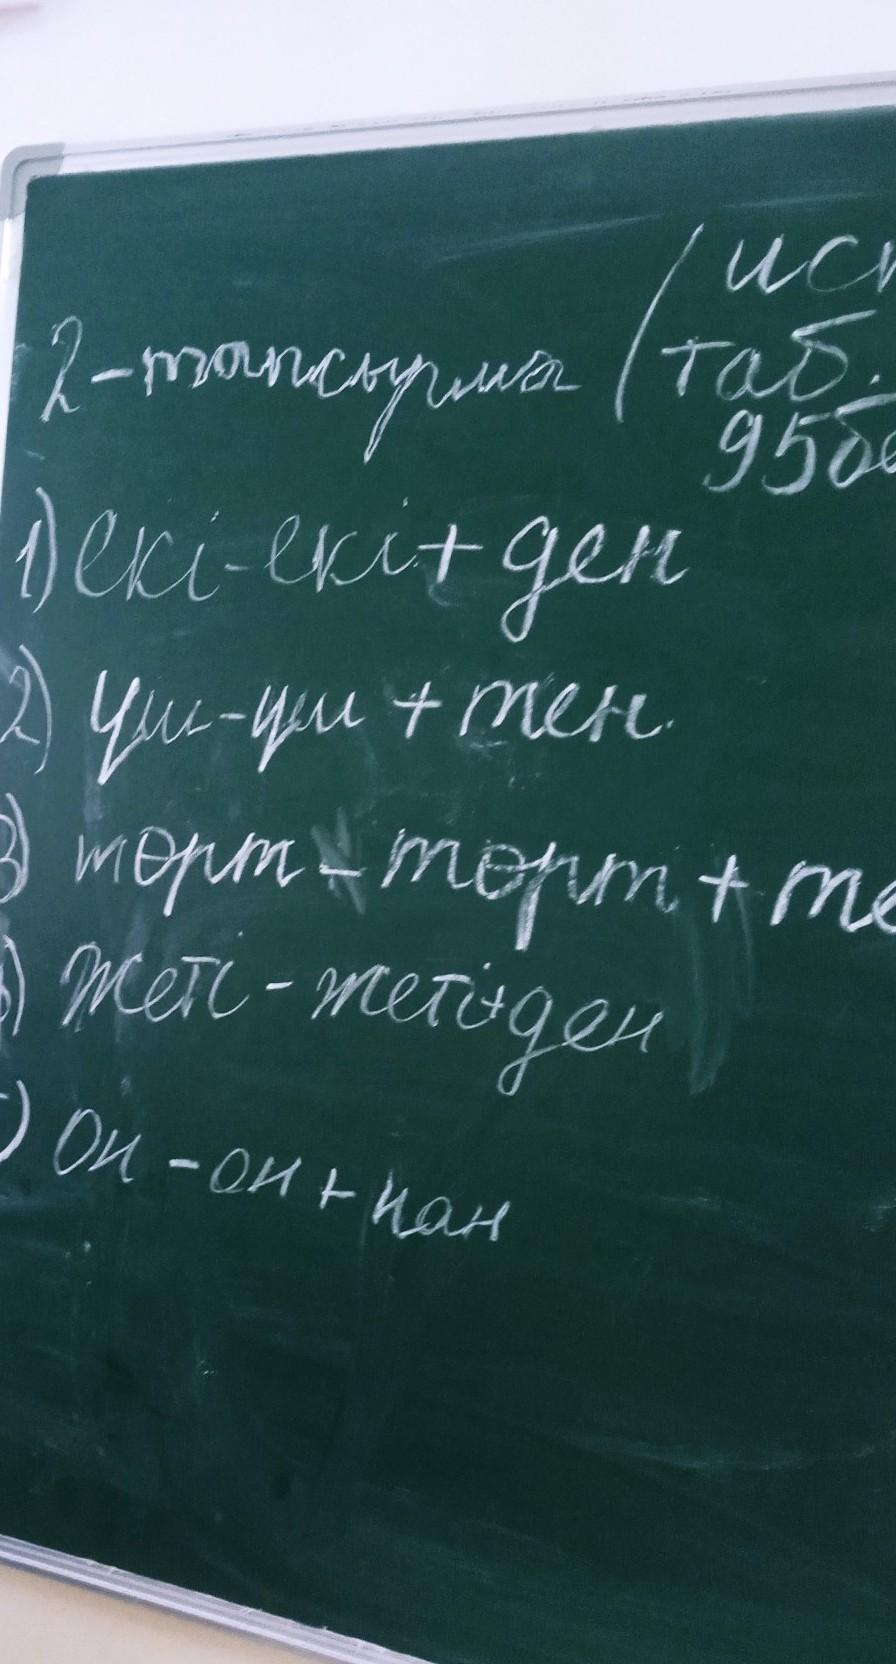 (исп
2-тапсырма (таб.
95бе
1) екі-екі+ден
2) үш-үш+тен.
3) төрт-төрт+те
4) жеті-жеті+ден
5) он-он+нан